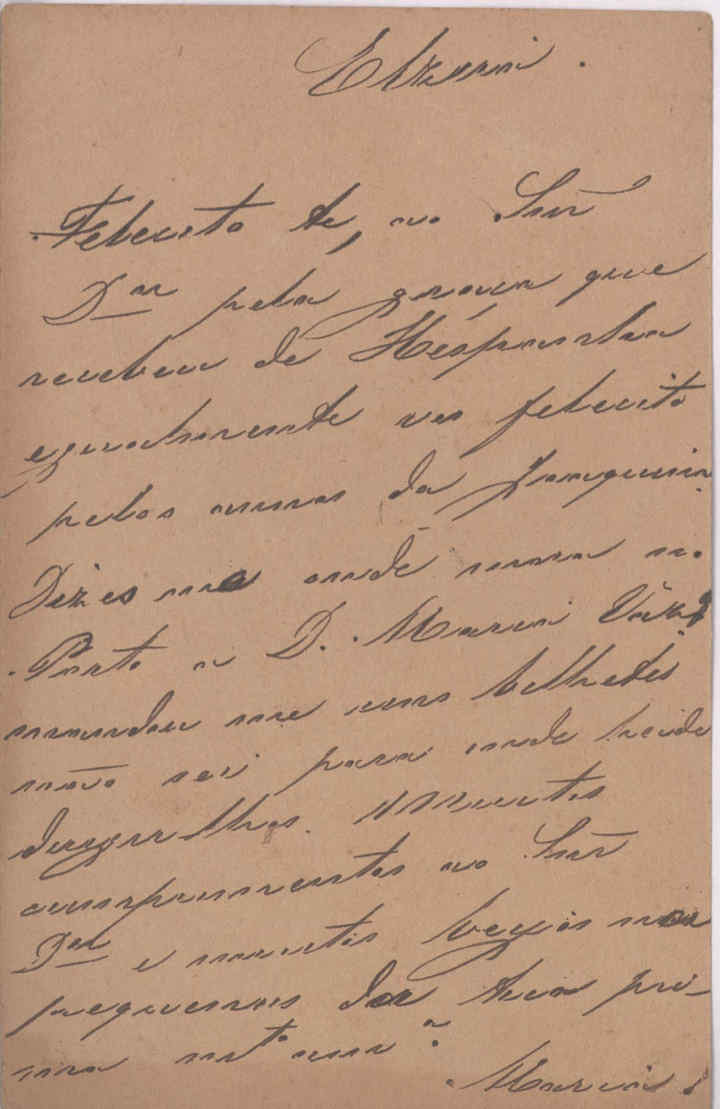 Elzeria.
Felecito te, ao Snr
Dor pela graça que
recebeu de Hespanha
egualmente vos felecito
pelos annos da Joaquina.
Dizes me onde mora no
Porto a D. Maria Vaz?
mandou me uns bilhetes
não sei para onde heide
deregir lhos. Muitos
cumprimentos ao Snr
Dor e muitos beijos nos
pequenos da tua pri-
ma mto am.ª
Maria.